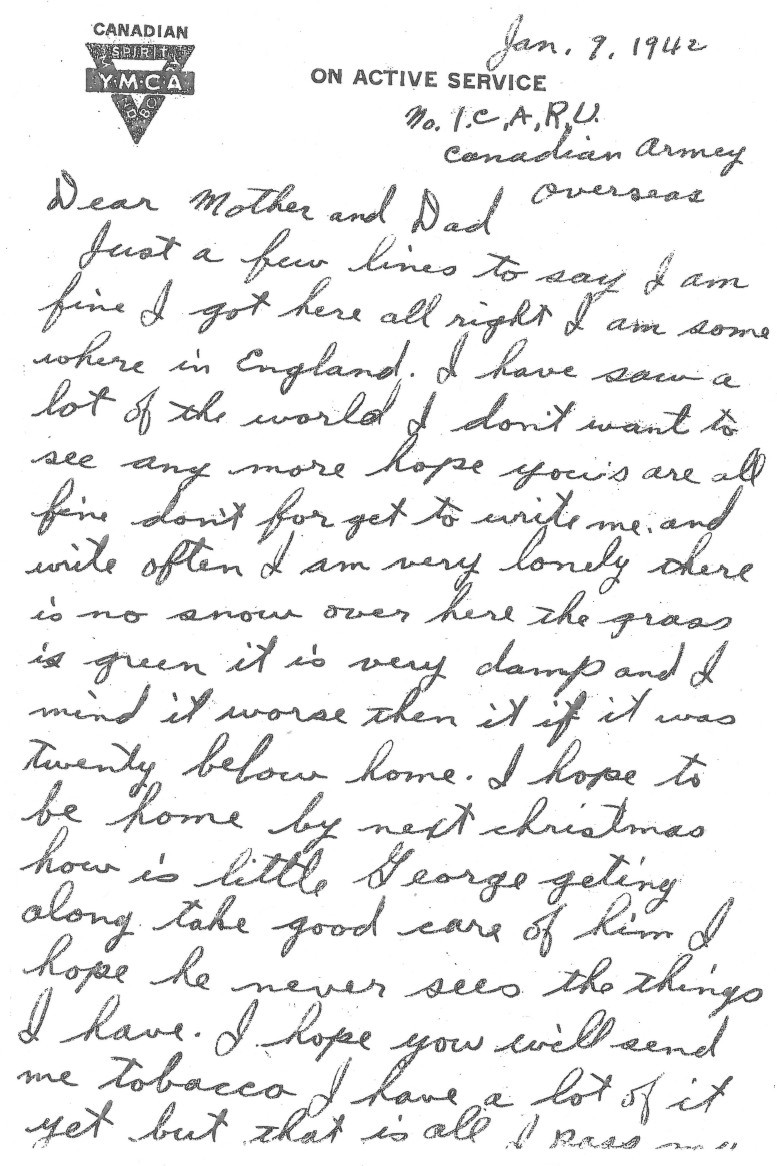 CANADIAN
SPIRIT
Y·M·C·A
MIND BODY
ON ACTIVE SERVICE
Jan. 9, 1942
No. 1. C. A. R. U.
Canadian Armey
Overseas
Dear Mother and Dad
Just a few lines to say I am
fine I got here all right I am some
where in England. I have saw a
lot of the world I don't want to
see any more hope yous are all
fine don't for get to write me. and
write often I am very lonely there
is no snow over here the grass
is green it is very damp and I
mind it worse then it if it was
twenty below home. I hope to
be home by next christmas
how is little George geting
along take good care of him I
hope he never sees the things
I have. I hope you will send
me tobacco I have a lot of it
yet but that is all I pass my